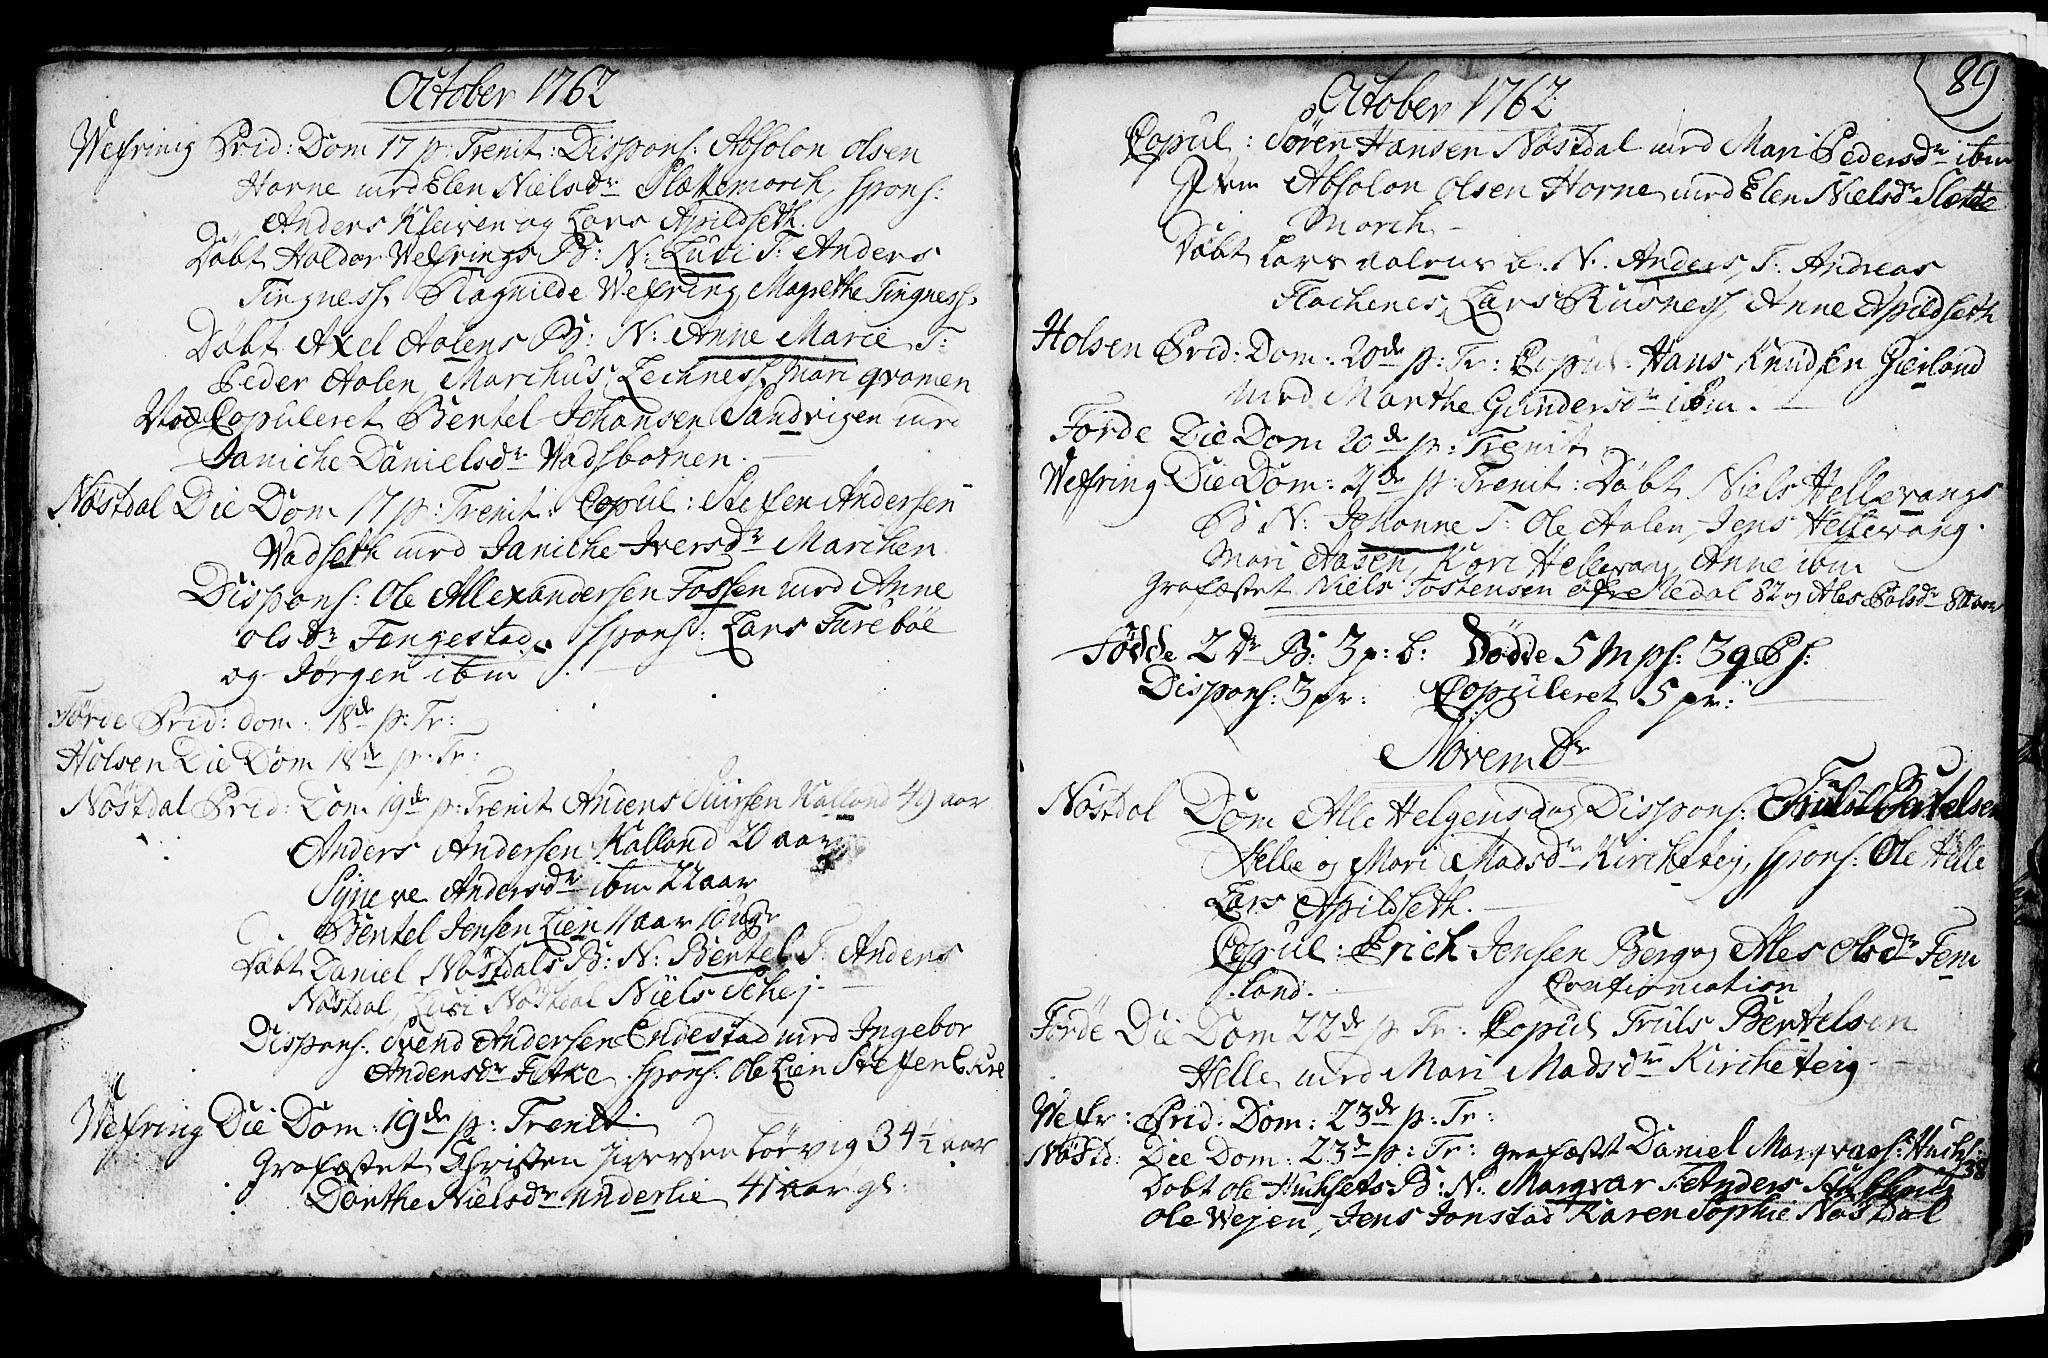 October 1762
Wefring Prid: Dom 17 p: Trenit: Dispons: Absolon olsen
Horne med Elen Nielsdr Slættemarch, spons:
Anders Kleiven og Lars Apildseth.
Døbt Haldor Wefrings B: N: Luci F: Anders
Tingness, Ragnilde Wefring, Magrethe Tingness.
Døbt Axel Aalens B: N: Anne Marie F:
Peder Aalen, Marchus Lechness, Mari qvamen
Copuleret Bentel Johansen Sandvigen med
Janiche Danielsdr Vadsbotnen.
Nøstdal Die Dom 17 p: Trenit: Copul: Stefen Andersen
Vadseth med Janiche Iversdr Marchen
Dispons: Ole Allexandersen Fossen med Anne
olsdr Fengestad. spons: Lars Furebøe
og Jørgen ibm
Førde Prid: dom. 18de p: Tr:
Holsen Die Dom 18de p. Tr:
Nøstdal Prid: Dom 19de p: Trenit Anders Kalland 49 aar
Anders Andersen Kalland 20 aar
Synneve Andersdr ibm 22 aar
Bentel Jensen Lien 11 aar 10 ugr
Døbt Daniel Nøstdals B: N: Bentel F: Anders
Nøstdal, Luci Nøstdal Niels Schej.
Dispons. Svend Andersen Endestad med Ingebor
Andersdr Fitke. spons. Ole Lien Stefen Ekre
Wefring Die Dom: 19de p: Trenit
Grafæstet Christen Iversen Lørvig 34½ aar
Dorthe Nielsdr underlie 41 aar gl:
89
October 1762
Copul: Søren Hansen Nøstdal med Mari Pedersdr ibm
Item Absolon olsen Horne med Elen Nielsdr Slætte
March
Døbt Lars aalens B. N. Anders, F. Andreas
Flachenes, Lars Rusness, Anne Apildseth
Holsen Prid: Dom: 20de p: Tr: Copul: Hans Knudsen Gierland
med Marthe Gundersdr ibm.
Førde Die Dom 20de p: Trenit
Wefring Die Dom: 21de p: Trenit: Døbt Niels Hellevangs
B N: Johanne F: Ole Aalen, Jens Hellevang.
Mari Aasen, Kari Hellevang, Anne ibm
Grafæstet Niels Tostensen øfre Nedal 82 og Ales Pålsdr 80 aar
Fødde 2 Dr B: 3 p: b: Dødde 5 M ps: 3 q Ps:
Dispons: 3 pr: Copuleret 5 pr:
Novembr
Nøstdal Dom Alle Helgensdag Dispons: Truls Bertelsen
Helle og Mari Madsdr Kircheteig, spons: Ole Helle
Lars Apildseth.
Copul: Erich Jensen Berg og Ales Olsdr Fem
land. Confirmation
Førde Die Dom 22de p Tr: Copul Truls Bertelsen
Helle med Mari Madsdr Kircheteig
Wefr: Prid: Dom: 23de p: Tr:
Nøstd: Die Dom: 23de p: Tr: grafæstet Daniel
38
Døbt Ole Huchsets B: N: Marqvar F: Anders
Ole Wejen, Jens Jonstad Karen Sophie Nøstdal